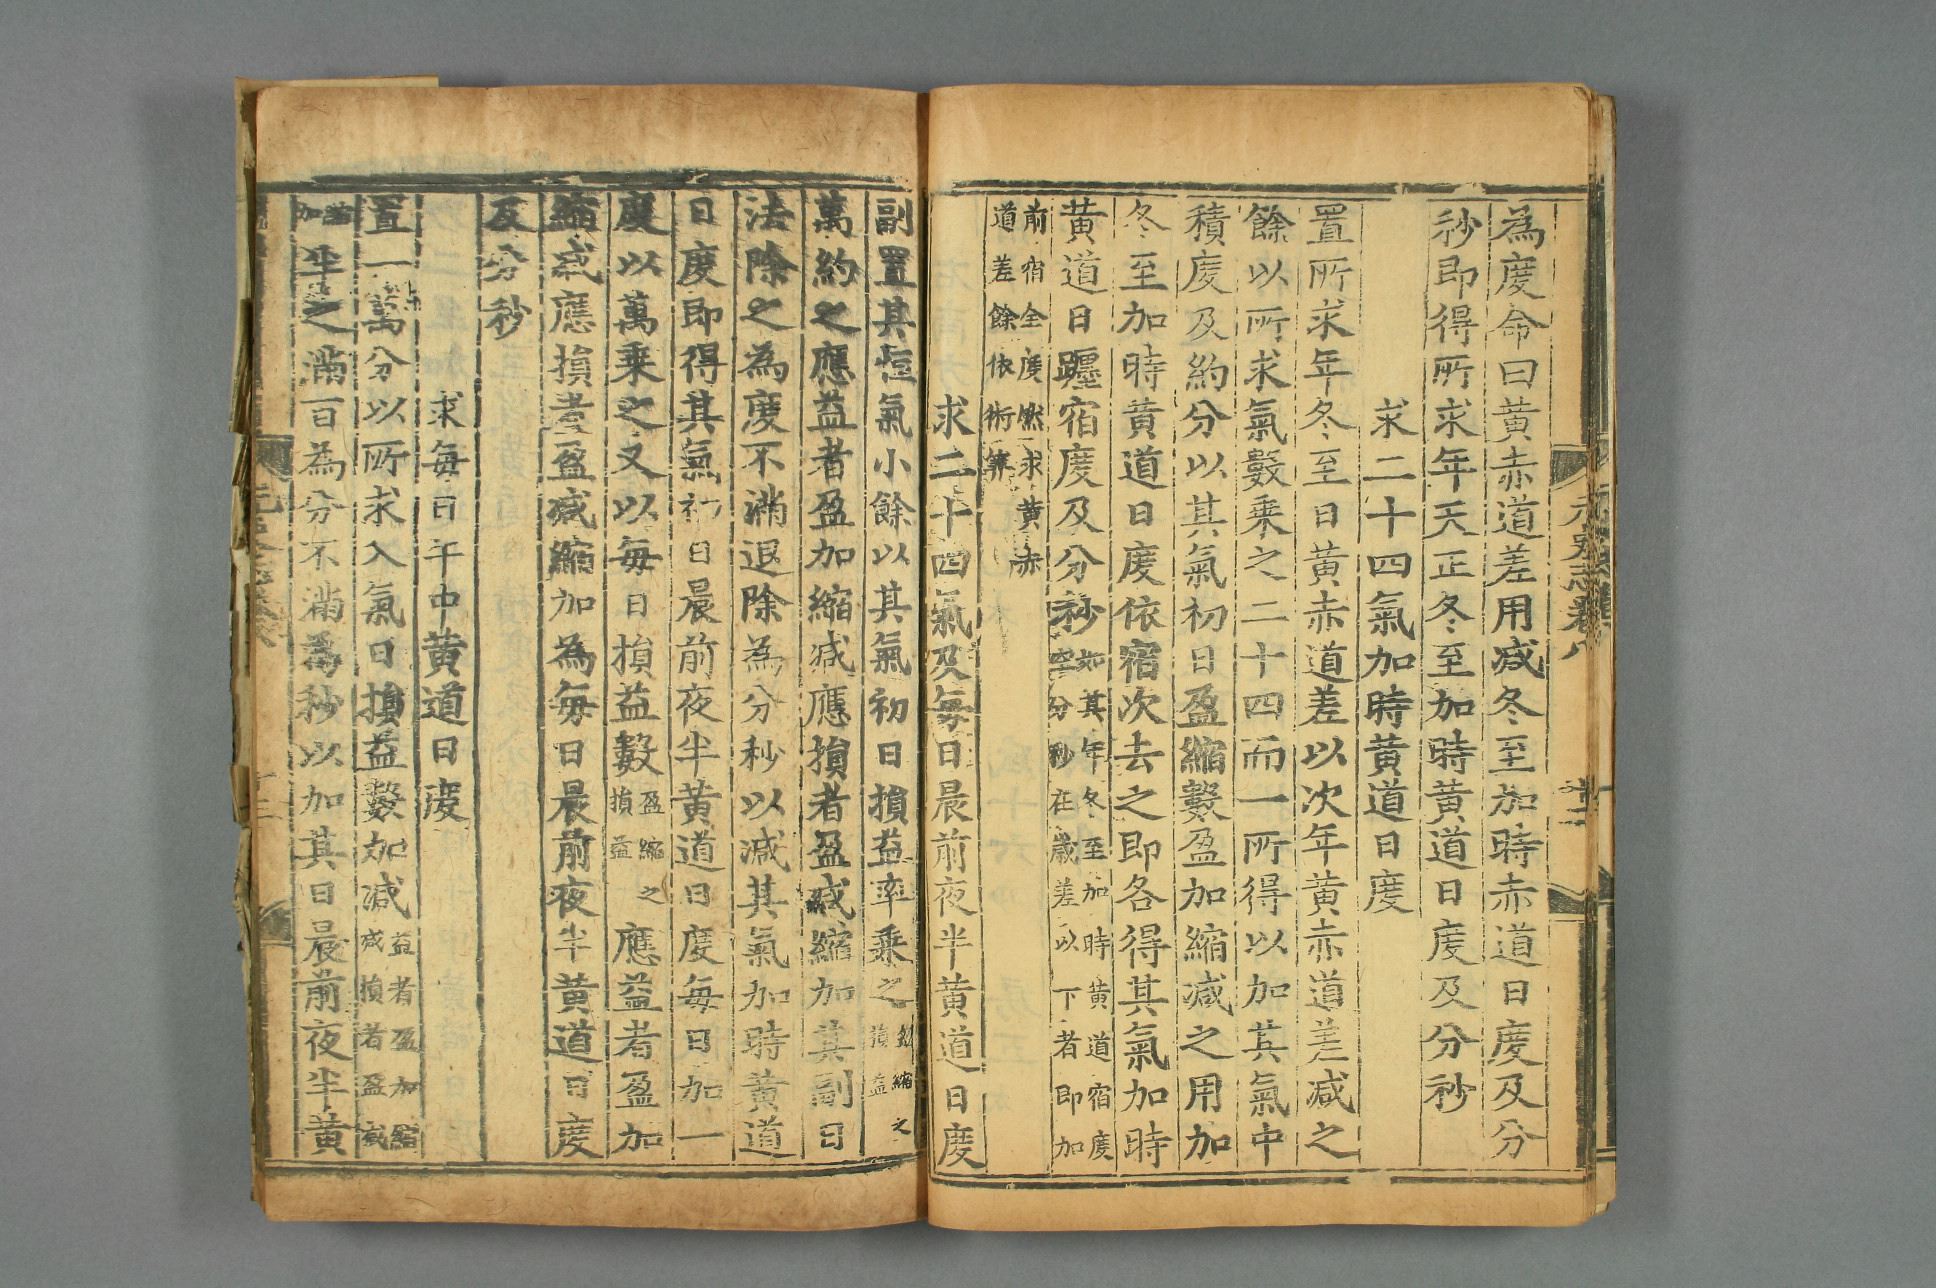 為度命曰黃赤道差用减冬至加時赤道日度及分
秒即得所求年天正冬至加時黃道日度及分秒
求二十四氣加時黃道日度
置所求年冬至日黃赤道差以次年黃赤道差减之
餘以所求氣數乘之二十四而一所得以加其氣中
積度及約分以其氣初日盈縮數盈加縮减之用加
冬至加時黃道日度依宿次去之即各得其氣加時
黃道日躔宿度及分秒如其年冬至加時黃道宿度
空分秒在歲差以下者即加
前宿全度然求黃赤
道差餘依術算
求二十四氣及每日晨前夜半黃道日度
副置其恒氣小餘以其氣初日損益率乘之盈縮之
損益
萬約之應益者盈加縮减應損者盈减縮加其副日
法除之為度不滿退除為分秒以减其氣加時黃道
日度即得其氣初日晨前夜半黃道日度每日加一
度以萬乘之又以每日損益數盈縮之
損益應益者盈加
縮减應損者盈减縮加為每日晨前夜半黃道日度
及分秒
求每日午中黃道日度
置一萬分以所求入氣日損益數加减益者盈加縮
减損者盈减
縮加半之滿百為分不滿為秒以加其日晨前夜半黃